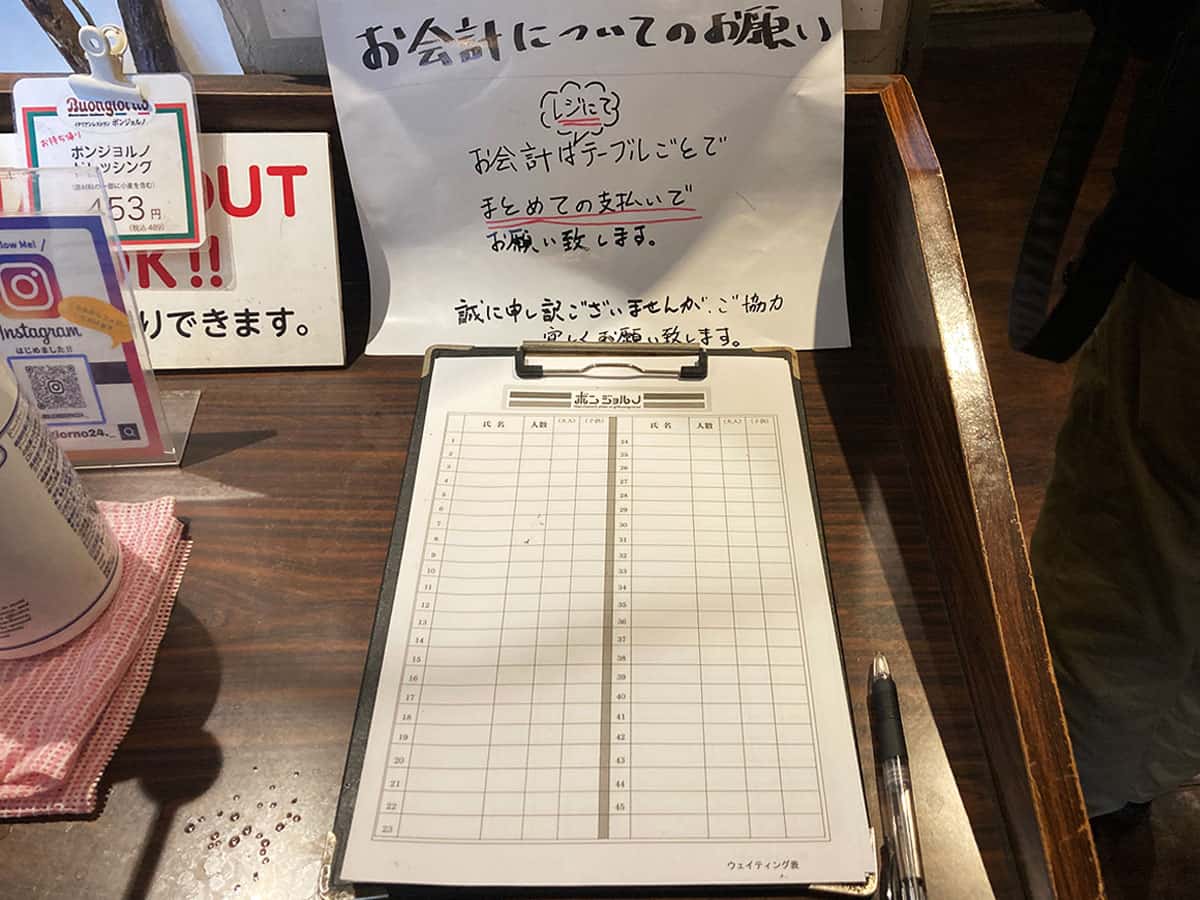 お会計についてのお願い
レジにて
お会計はテーブルごとで
まとめての支払いで
お願い致します。
誠に申し訳ございませんが、ご協力
宜しくお願い致します。
Buongiorno
イタリアンレストラン ボンジョルノ
お持ち帰り
ボンジョルノ
ドレッシング
453円
(税込 489)
OUT
OK!!
りできます。
low Me! /
Instagram
はじめました!!
giorno24._
ボンジョルノ
氏名 人数 (大人) (子供) 氏名 人数 (大人) (子供)
1 24
2 25
3 26
4 27
5 28
6 29
7 30
8 31
9 32
10 33
11 34
12 35
13 36
14 37
15 38
16 39
17 40
18 41
19 42
20 43
21 44
22 45
23
ウェイティング表